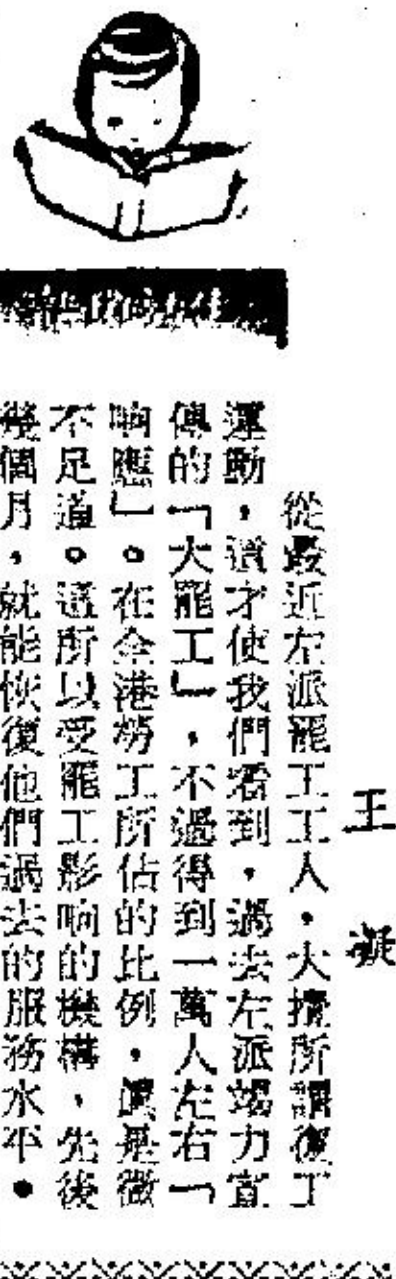 王凝
從最近左派罷工工人，大攪所謂復工
運動，這才使我們看到，過去左派竭力宣
傳的「大罷工」，不過得到一萬人左右「
响應」。在全港勞工所佔的比例，眞是微
不足道。這所以受罷工影响的機構，先後
幾個月，就能恢復他們過去的服務水平。